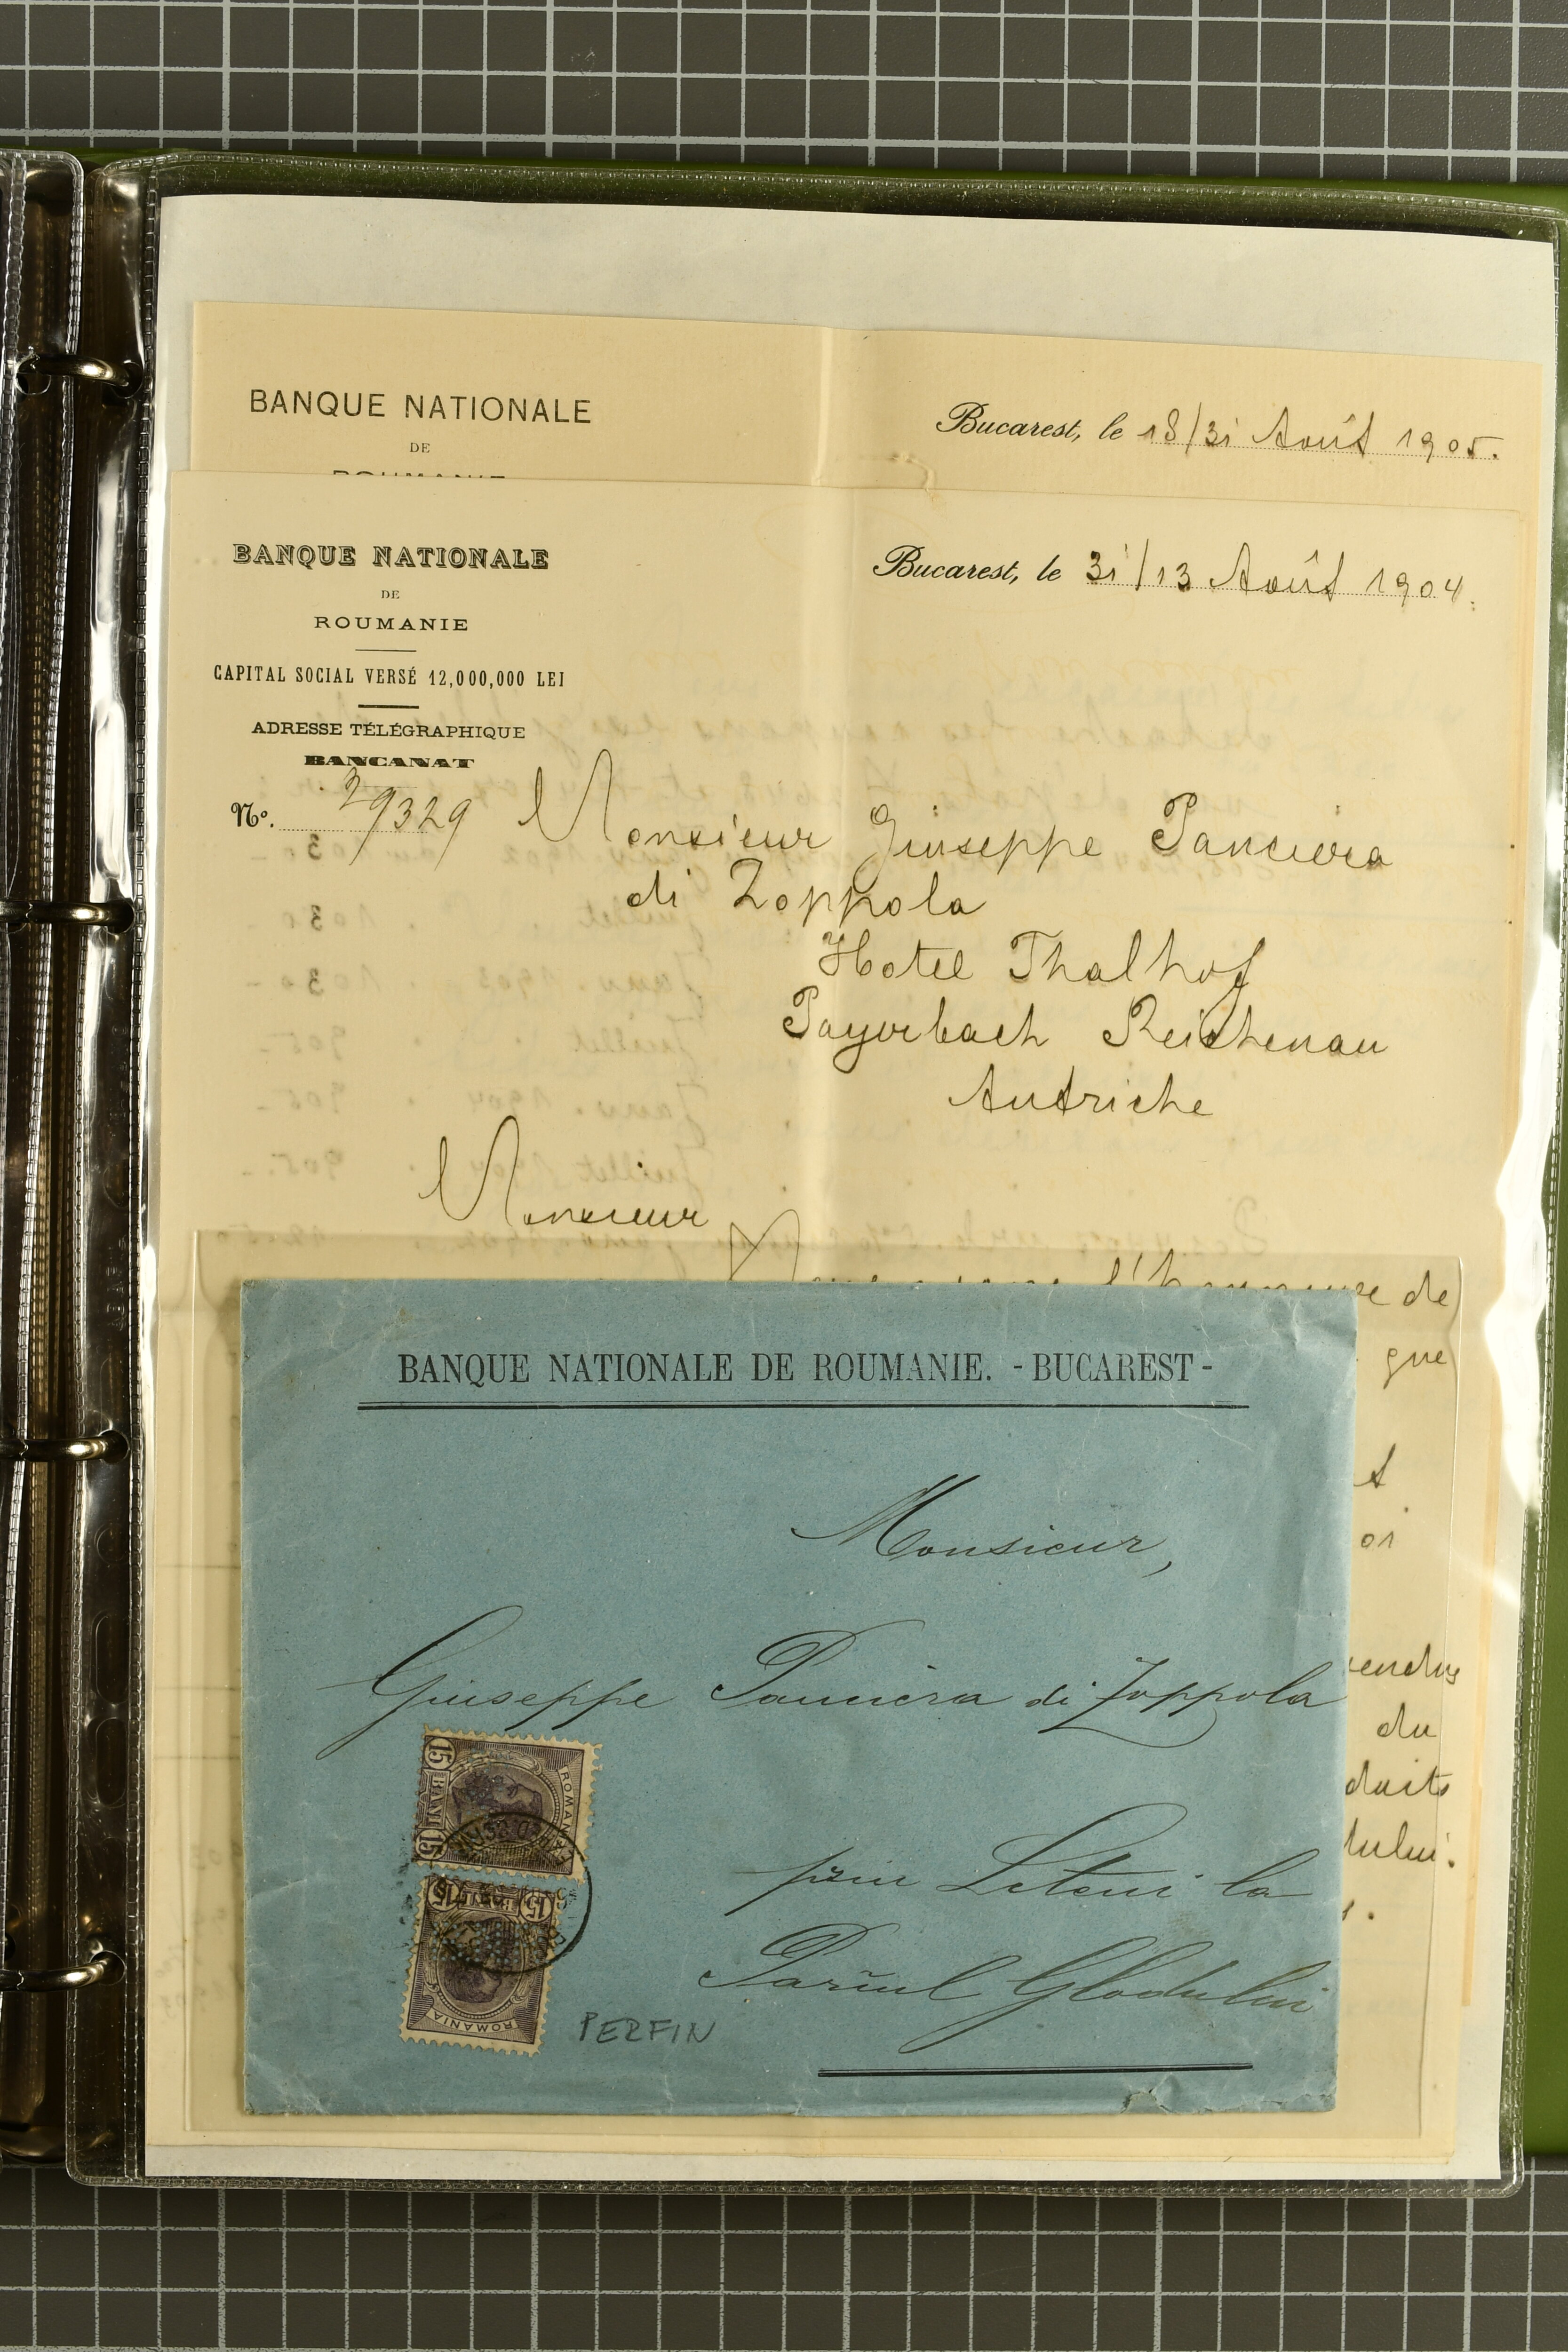 BANQUE NATIONALE
DE
ROUMANIE
Bucarest, le 18/31 Août 1905.
BANQUE NATIONALE
DE
ROUMANIE
CAPITAL SOCIAL VERSÉ 12,000,000 LEI
ADRESSE TÉLÉGRAPHIQUE
BANCANAT
No. 29329
Bucarest, le 31/13 Août 1904.
Monsieur Giuseppe Panciera
di Zoppola
Hotel Thalhof
Payerbach Reichenau
Autriche
Monsieur
l'honneur de
que
01
du
duits
BANQUE NATIONALE DE ROUMANIE. - BUCAREST -
Monsieur,
Giuseppe Panciera di Zoppola
prin Liteni la
Parăul Glodului
15 BANI 15
ROMANIA
15 BANI 15
ROMANIA
PERFIN